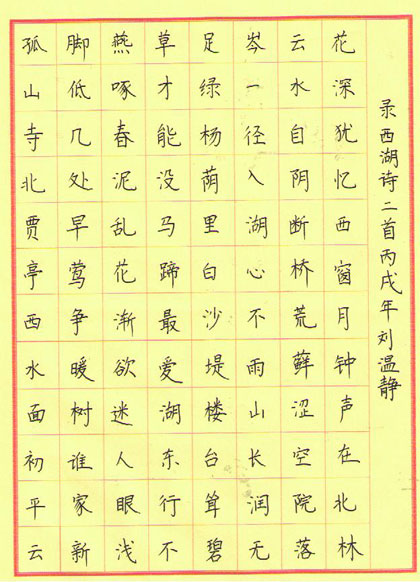 孤山寺北贾亭西水面初平云
脚低几处早莺争暖树谁家新
燕啄春泥乱花渐欲迷人眼浅
草才能没马蹄最爱湖东行不
足绿杨荫里白沙堤楼台耸碧
岑一径入湖心不雨山长润无
云水自阴断桥荒藓涩空院落
花深犹忆西窗月钟声在北林
录西湖诗二首丙戌年刘温静